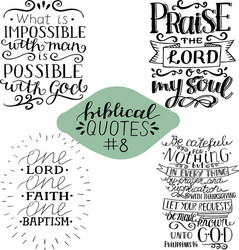 What is
IMPOSSIBLE
with man
is
POSSIBLE
with God
PRAISE
THE
LORD
O
my soul
biblical
QUOTES
#8
One
LORD
One
FAITH
One
BAPTISM
Be careful
FOR
NOTHING
BUT
IN EVERY THING
by prayer and
supplication
WITH THANKSGIVING
LET YOUR REQUESTS
be made known
UNTO GOD
PHILIPPIANS 4:6